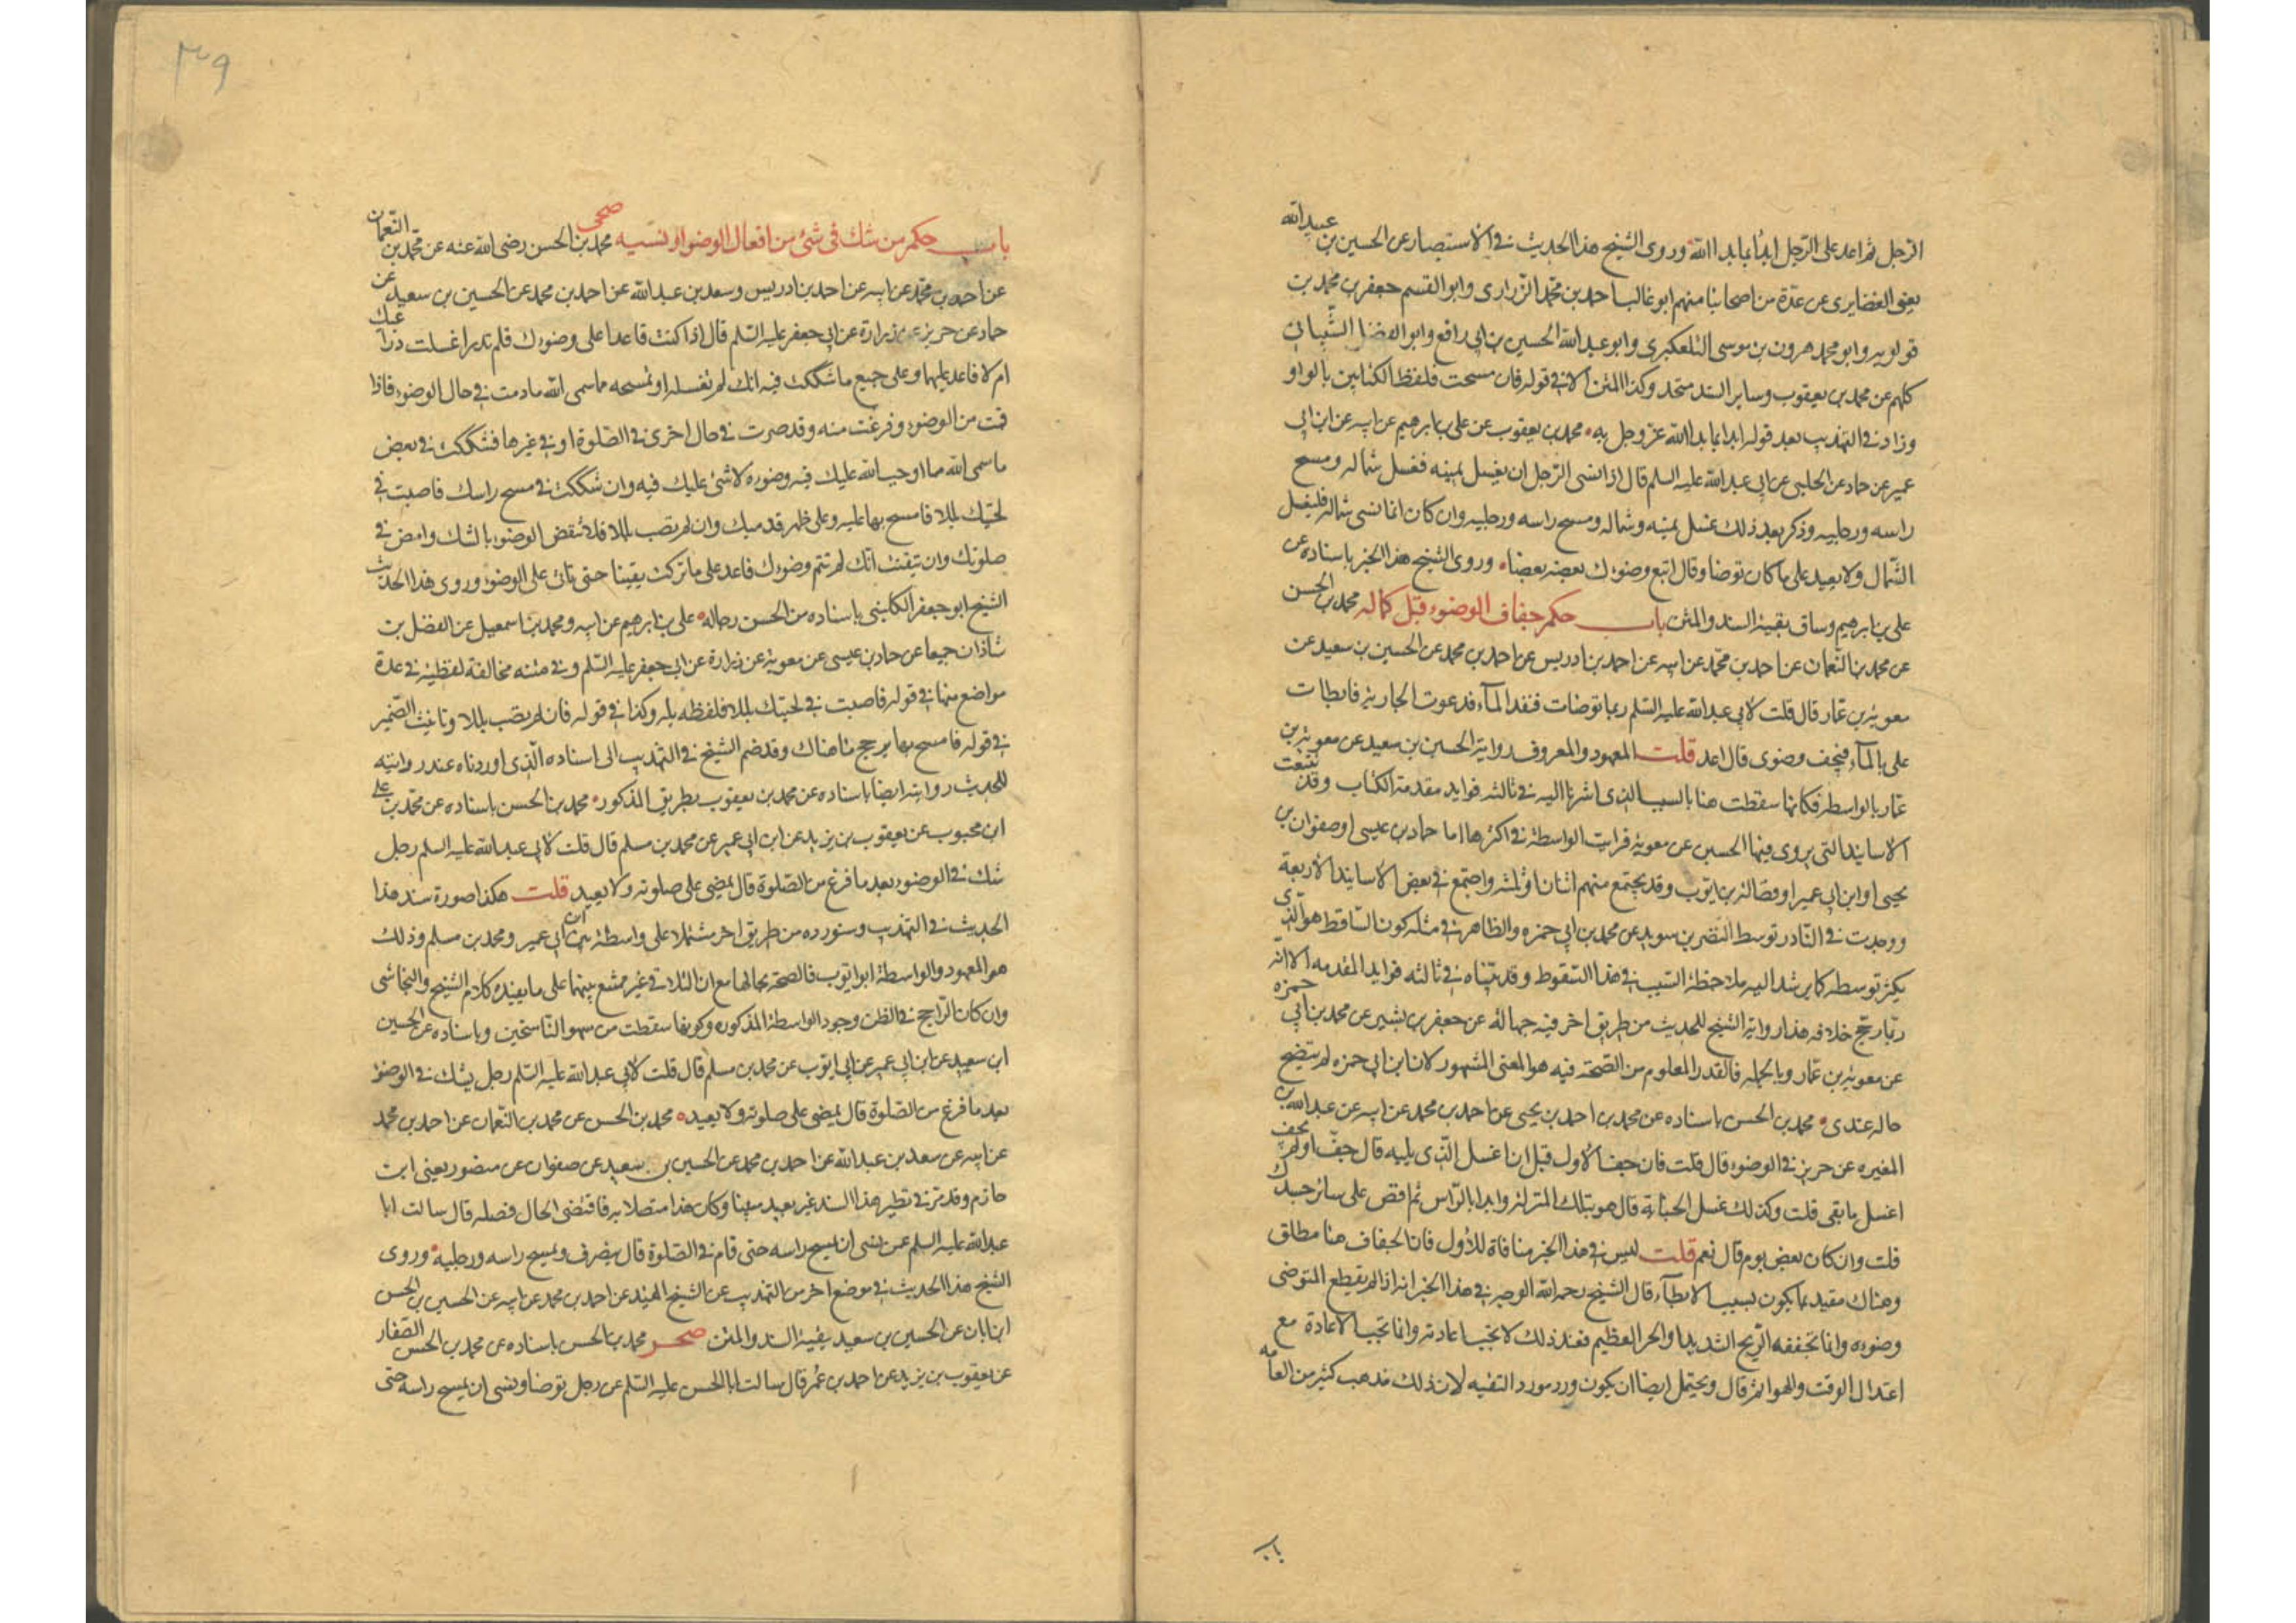 الرجل ثم اعد على الرجل ابدأ بما بدا الله وروى الشيخ هذا الحديث في الاستبصار عن الحسين بن عبيد الله
يعني الغضايري عن عدة من اصحابنا منهم ابو غالب احمد بن محمد الزراري وابو القسم جعفر بن محمد بن
قولويه وابو محمد هرون بن موسى التلعكبري وابو عبد الله الحسين بن ابي رافع وابو المفضل الشيباني
كلهم عن محمد بن يعقوب وساير السند متحد وكذا المتن الا في قوله فان مسحت فلفظ الكتابين بالواو
وزاد في التهذيب بعد قوله ابدا بما بدا الله عز وجل به محمد بن يعقوب عن علي بن ابرهيم عن ابيه عن ابن ابي
عمير عن حماد عن الحلبي عن ابي عبد الله عليه السلم قال اذا نسى الرجل ان يغسل يمينه فغسل شماله ومسح
راسه ورجليه وذكر بعد ذلك غسل يمينه وشماله ومسح راسه ورجليه وان كان انما نسى شماله فليغسل
الشمال ولا يعيد على ما كان توضا وقال اتبع وضوءك بعضه بعضا وروى الشيخ هذا الخبر باسناده عن
علي بن ابرهيم وساق بقية السند والمتن باب حكم جفاف الوضوء قبل كماله محمد بن الحسن
عن محمد بن النعمان عن احمد بن محمد عن ابيه عن احمد بن ادريس عن احمد بن محمد عن الحسين بن سعيد عن
معوية بن عمار قال قلت لابي عبد الله عليه السلم ربما توضات فنفد الماء فدعوت الجارية فابطات
على بالماء فيجف وضوى قال اعد قلت المعهود والمعروف رواية الحسين بن سعيد عن معوية بن
عمار بالواسطة فكانها سقطت هنا بالسبب الذى اشرنا اليه في ثالثه فوايد مقدمة الكتاب وقد تتبعت
الاسانيد التى يروى فيها الحسين عن معوية فرايت الواسطة في اكثرها اما حماد بن عيسى او صفوان بن
يحيى او ابن ابي عمير او فضالة بن ايوب وقد يجتمع منهم اثنان او ثلثه واجتمع في بعض الاسانيد الاربعة
ووجدت في النادر توسط النضر بن سويد عن محمد بن ابي حمزه والظاهر في مثله كون الساقط هو الذى
يكثر توسطه كما يرشد اليه ملاحظة السبب في هذا السقوط وقد بيناه في ثالثه فوايد المقدمه الا انه
ربما رجح خلافه هنا رواية الشيخ للحديث من طريق اخر فيه جهالة عن جعفر بن بشير عن محمد بن ابي حمزه
عن معوية بن عمار وبالجملة فالقدر المعلوم من الصحة فيه هو المعنى المشهور لان ابن ابي حمزه لم يتضح
حاله عندى محمد بن الحسن باسناده عن محمد بن احمد بن يحيى عن احمد بن محمد عن ابيه عن عبد الله بن
المغيره عن حريز في الوضوء قال قلت فان جف الاول قبل ان اغسل الذى يليه قال جف او لم يجف
اغسل ما بقى قلت وكذلك غسل الجنابة قال هو بتلك المنزلة وابدا بالراس ثم افض على سائر جسدك
قلت وان كان بعض يوم قال نعم قلت ليس في هذا الخبر منافاة للاول فان الجفاف هنا مطلق
وهناك مقيد بما يكون بسبب الابطاء قال الشيخ رحمه الله الوجه في هذا الخبر انه اذا لم يقطع المتوضى
وضوءه وانما تجففه الريح الشديد او الحر العظيم فعند ذلك لا تجب اعادته وانما تجب الاعادة مع
اعتدال الوقت والهوا ثم قال ويحتمل ايضا ان يكون ورد مورد التقيه لان ذلك مذهب كثير من العامه
باب
۳۹
باب حكم من شك في شئ من افعال الوضوا ونسيه صحى محمد بن الحسن رضى الله عنه عن محمد بن النعمان
عن احمد بن محمد عن ابيه عن احمد بن ادريس وسعد بن عبد الله عن احمد بن محمد عن الحسين بن سعيد عن
حماد عن حريز عن زرارة عن ابي جعفر عليه السلم قال اذا كنت قاعدا على وضوءك فلم تدر اغسلت ذراعيك
ام لا فاعد عليهما وعلى جميع ما شككت فيه انك لم تغسله او تمسحه مما سمى الله ما دمت في حال الوضوء فاذا
قمت من الوضوء وفرغت منه وقد صرت في حال اخرى في الصلوة او في غيرها فشككت في بعض
ما سمى الله مما اوجب الله عليك فيه وضوءه لا شئ عليك فيه وان شككت في مسح راسك فاصبت في
لحيتك بللا فامسح بها عليه وعلى ظهر قدميك وان لم تصب بللا فلا تنقض الوضوء بالشك وامض في
صلوتك وان تيقنت انك لم تتم وضوءك فاعد على ما تركت يقينا حتى تاتى على الوضوء وروى هذا الحديث
الشيخ ابو جعفر الكليني باسناده من الحسن رجاله علي بن ابرهيم عن ابيه ومحمد بن اسمعيل عن الفضل بن
شاذان جميعا عن حماد بن عيسى عن معوية عن زرارة عن ابي جعفر عليه السلم وفي متنه مخالفة لفظية في عدة
مواضع منها في قوله فاصبت في لحيتك بللا فلفظه بلة وكذا في قوله فان لم تصب بللا وتانيث الضمير
في قوله فامسح بها يرجح ما هناك وقد ضم الشيخ في التهذيب الى اسناده الذى اوردناه عند روايته
للحديث روايته ايضا باسناده عن محمد بن يعقوب بطريق المذكور محمد بن الحسن باسناده عن محمد بن على
ابن محبوب عن يعقوب بن يزيد عن ابن ابي عمير عن محمد بن مسلم قال قلت لابي عبد الله عليه السلم رجل
شك في الوضوء بعد ما فرغ من الصلوة قال يمضى على صلوته ولا يعيد قلت هكذا صورة سند هذا
الحديث في التهذيب وسنورده من طريق اخر مشتملا على واسطة بين ابن ابي عمير ومحمد بن مسلم وذلك
هو المعهود والواسطة ابو ايوب فالصحة بحالها مع ان التلاقي غير ممتنع بينهما على ما يفيده كلام الشيخ والنجاشى
وان كان الراجح في الظن وجود الواسطة المذكوره وكونها سقطت من سهو الناسخين وباسناده عن الحسين
ابن سعيد عن ابن ابي عمير عن ابي ايوب عن محمد بن مسلم قال قلت لابي عبد الله عليه السلم رجل يشك في الوضوء
بعد ما فرغ من الصلوة قال يمضى على صلوته ولا يعيد محمد بن الحسن عن محمد بن النعمان عن احمد بن محمد
عن ابيه عن سعد بن عبد الله عن احمد بن محمد عن الحسين بن سعيد عن صفوان عن منصور يعنى ابن
حازم وقد مر في نظير هذا السند غير بعيد مبينا وكان هذا متصلا به فاقتضى الحال فصله قال سالت ابا
عبد الله عليه السلم عمن نسى ان يمسح راسه حتى قام في الصلوة قال ينصرف ويمسح راسه ورجليه وروى
الشيخ هذا الحديث في موضع اخر من التهذيب عن الشيخ المفيد عن احمد بن محمد عن ابيه عن الحسين بن الحسن
ابن ابان عن الحسين بن سعيد ببقية السند والمتن صحر محمد بن الحسن باسناده عن محمد بن الحسن الصفار
عن يعقوب بن يزيد عن احمد بن عمر قال سالت ابا الحسن عليه السلم عن رجل توضا ونسى ان يمسح راسه حتى